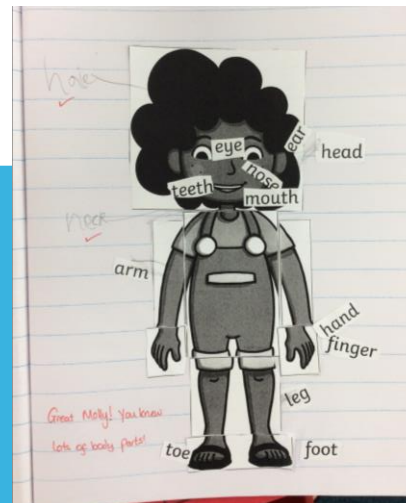 hair
eye
ear
head
teeth
nose
mouth
neck
arm
hand
finger
leg
Great Molly! You know
lots of body parts!
toe
foot